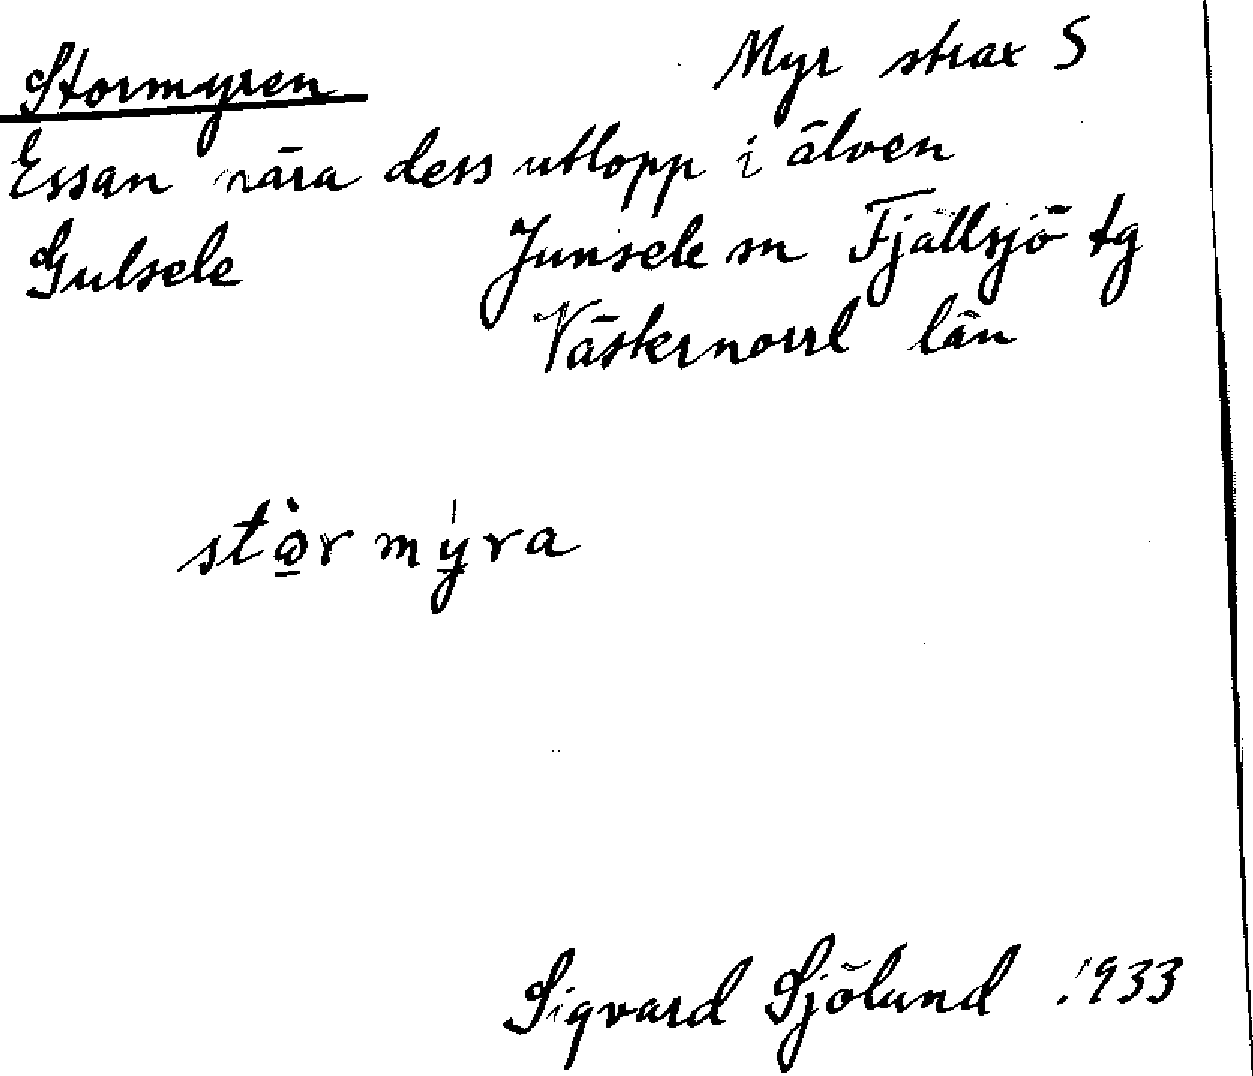 Stormyren Myr strax S
Essan nära dess utlopp i älven
Gulsele Junsele sn Fjällsjö tg
Västernorrl län
stòrmýra
Sigvard Sjölund 1933